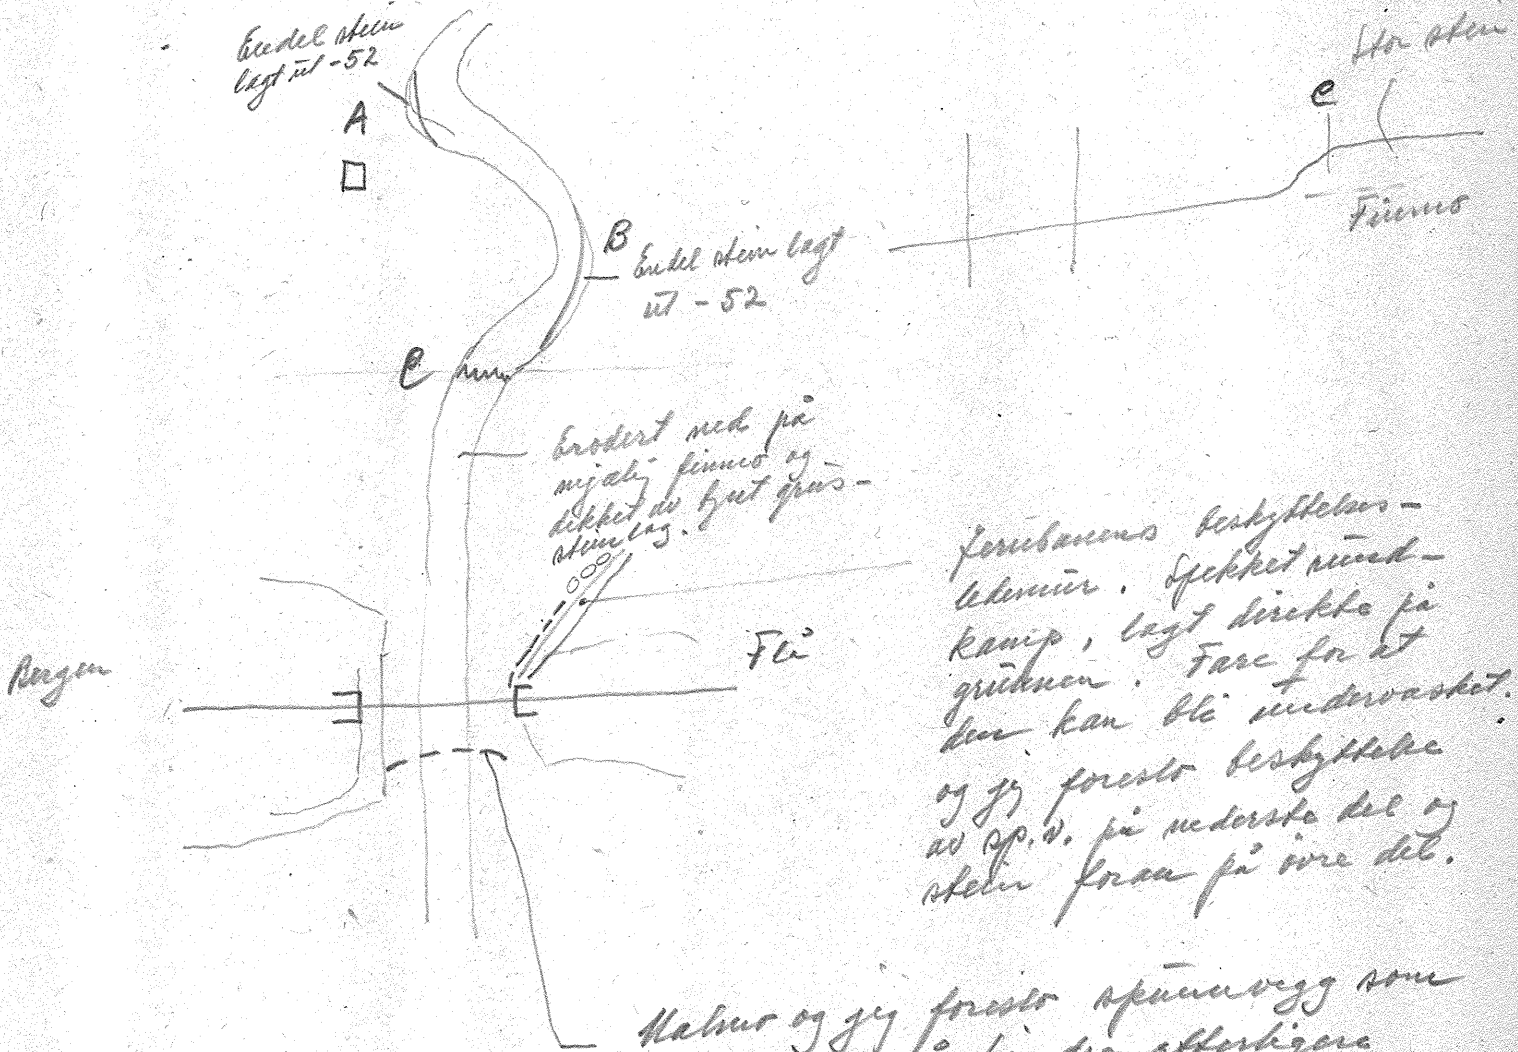 Endel stein
lagt ut - 52
A
Stor stein
C
Finmo
B
Endel stein lagt
ut - 52
C
Erodert ned på
finmo og
dekket av tynt grus-
steinlag.
Jernbanens beskyttelses-
ledemur. Spekket rund-
kamp, lagt direkte på
grunnen. Fare for at
den kan bli undervasket.
og jeg foreslo beskyttelse
av sp.v. på nederste del og
stein foran på övre del.
Flå
Bergen
Malmo og jeg foreslo spunnvegg som